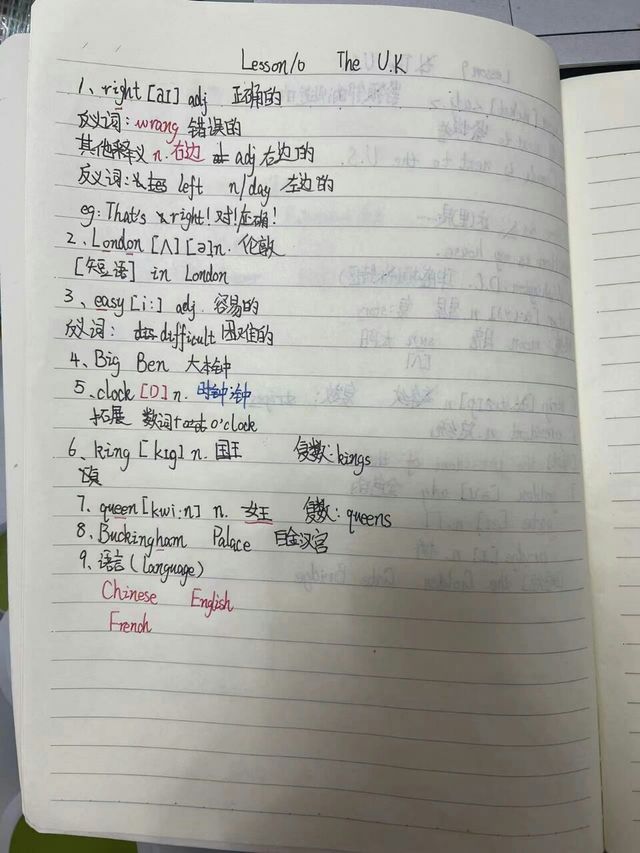 Lesson 10 The U.K
1、right [aI] adj 正确的
反义词:wrong 错误的
其他释义 n.右边 adj 右边的
反义词: left n/day 左边的
eg: That's right! 对!正确!
2、London [ʌ] [ə] n. 伦敦
[短语] in London
3、easy [i:] adj. 容易的
反义词: difficult 困难的
4、Big Ben 大本钟
5、clock [ɒ] n. 时钟;钟
拓展 数词+ o'clock
6、king [kIg] n. 国王 复数:kings
7、queen [kwi:n] n. 女王 复数:queens
8、Buckingham Palace 白金汉宫
9、语言 (language)
Chinese English
French